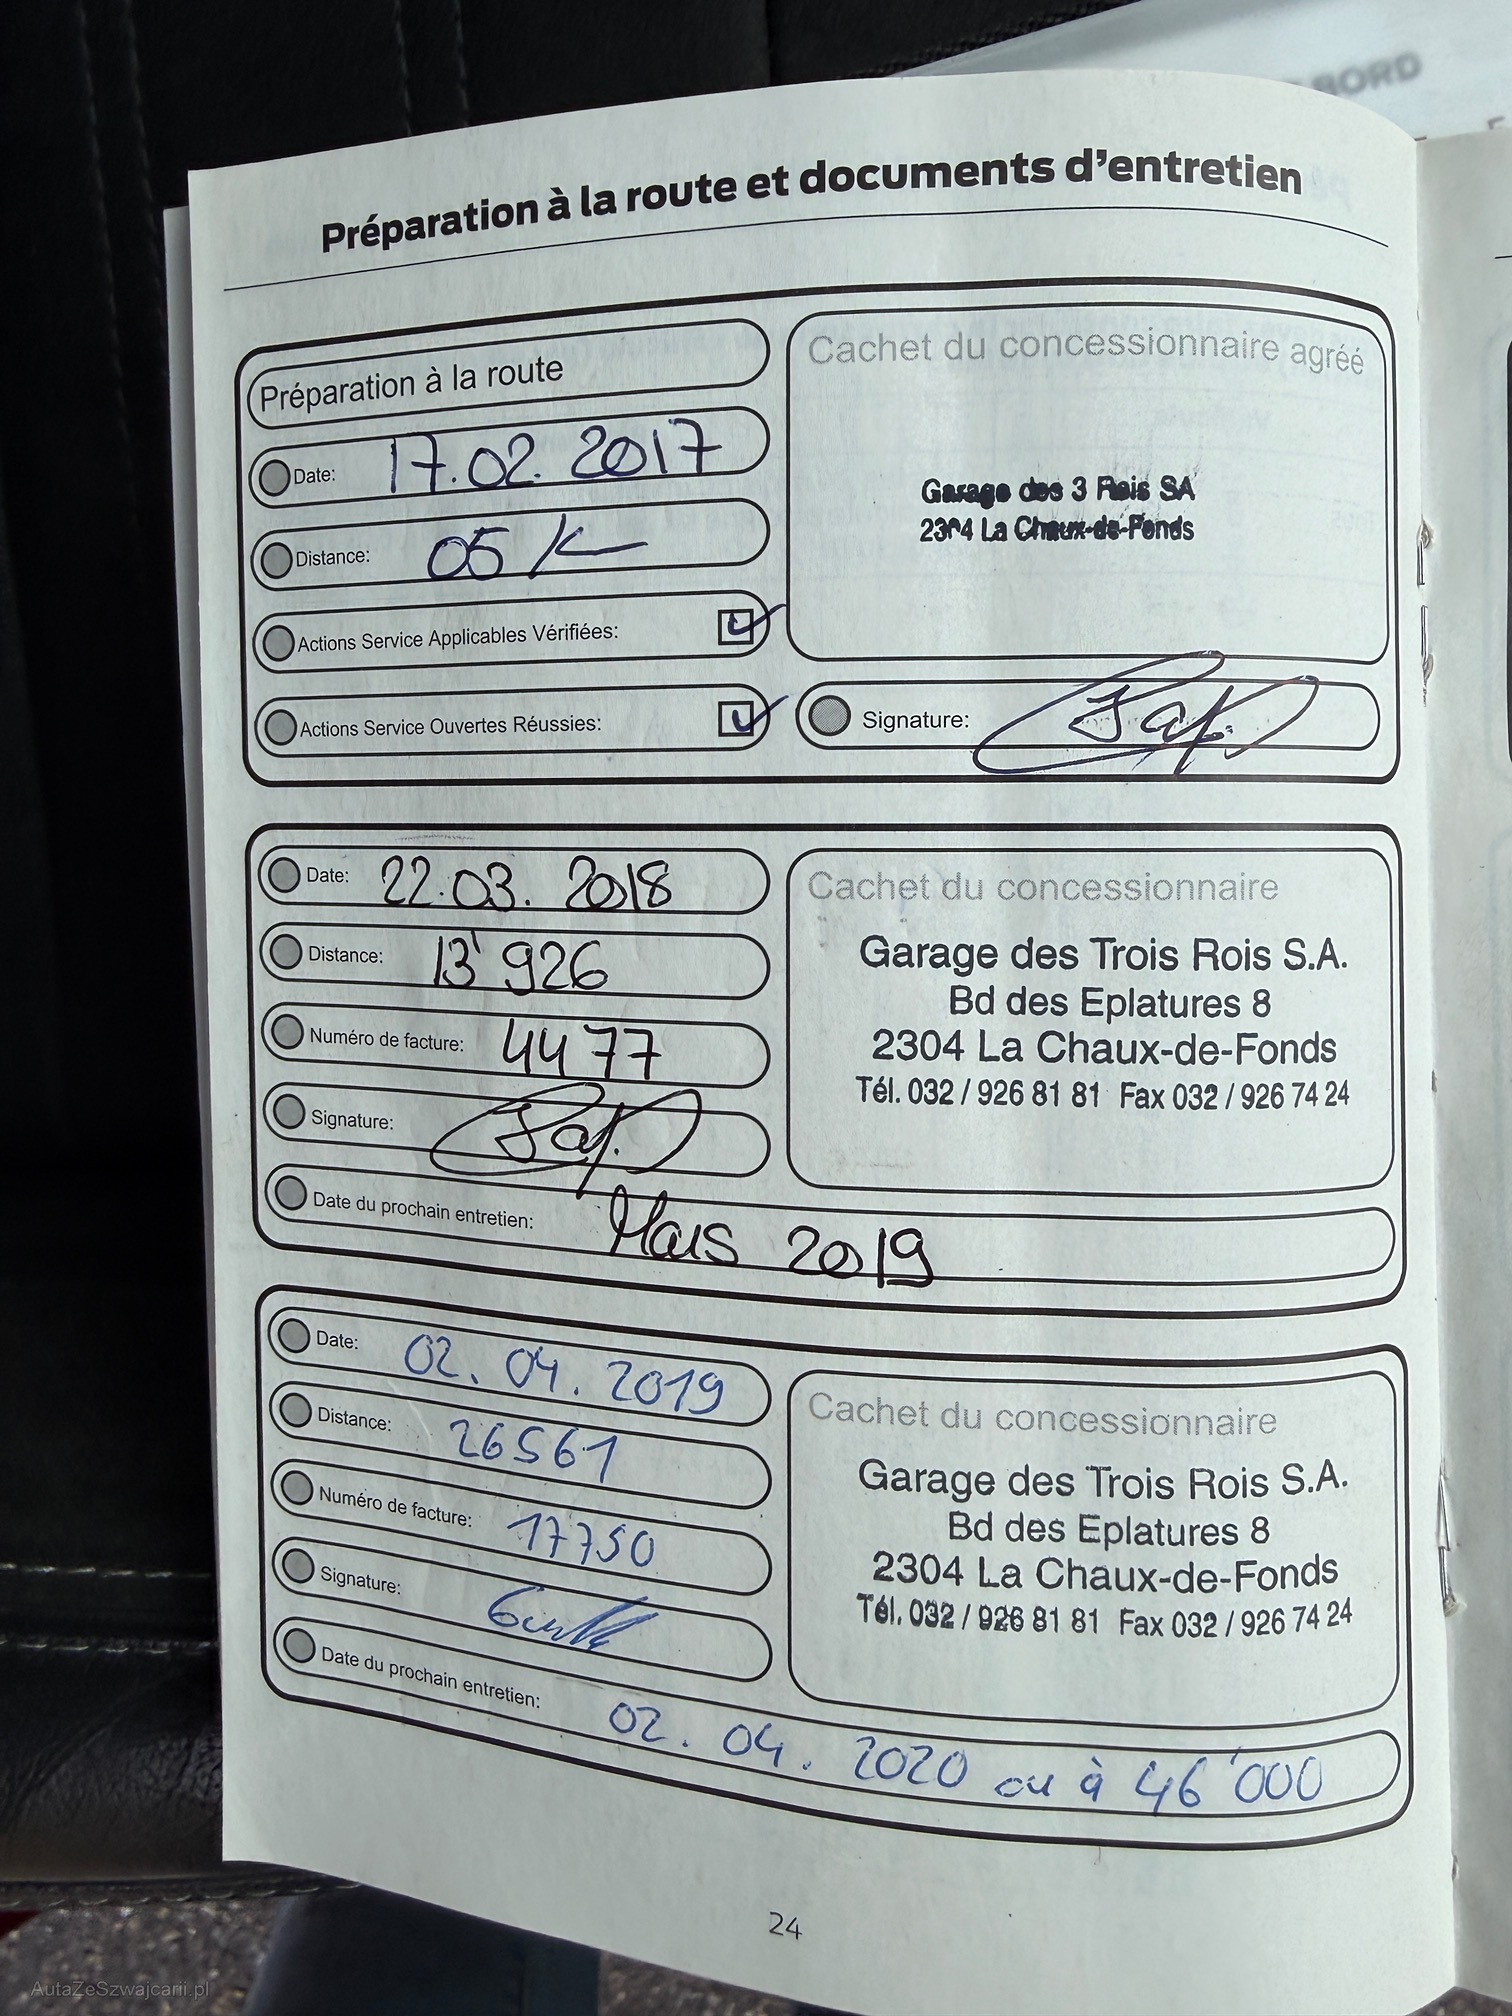 BORD
Préparation à la route et documents d'entretien
Préparation à la route
Date: 17.02.2017
Distance: 05 K
Actions Service Applicables Vérifiées:
Actions Service Ouvertes Réussies:
Cachet du concessionnaire agréé
Garage des 3 Rois SA
2304 La Chaux-de-Fonds
Signature:
Date: 22.03.2018
Distance: 13'926
Numéro de facture: 4477
Signature:
Date du prochain entretien: Mars 2019
Cachet du concessionnaire
Garage des Trois Rois S.A.
Bd des Eplatures 8
2304 La Chaux-de-Fonds
Tél. 032 / 926 81 81 Fax 032 / 926 74 24
Date: 02.04.2019
Distance: 26561
Numéro de facture: 17750
Signature:
Date du prochain entretien: 02.04.2020 ou à 46'000
Cachet du concessionnaire
Garage des Trois Rois S.A.
Bd des Eplatures 8
2304 La Chaux-de-Fonds
Tél. 032 / 926 81 81 Fax 032 / 926 74 24
24
AutaZeSzwajcarii.pl